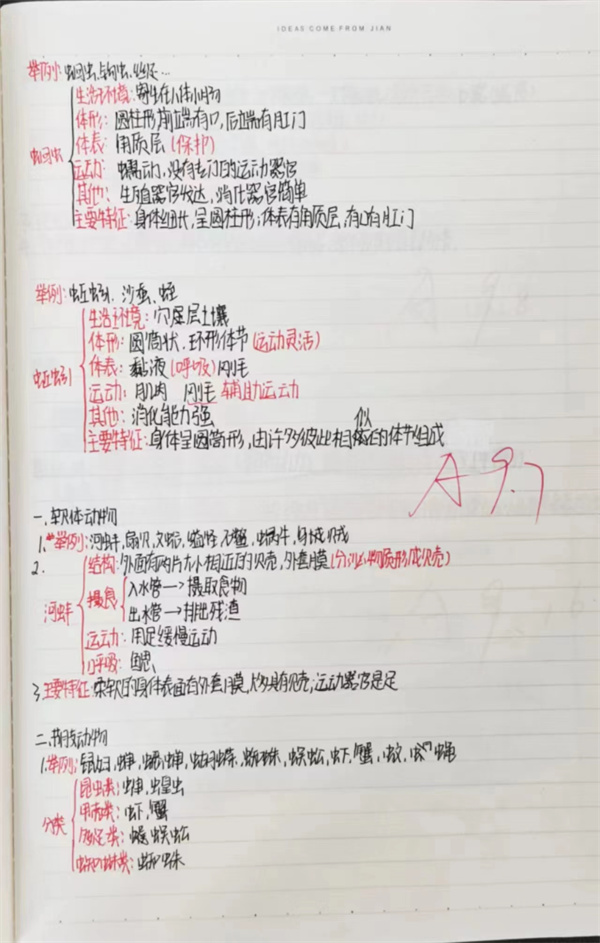 IDEAS COME FROM JIAN
举例: 蛔虫、钩虫、丝虫…
蛔虫
生活环境: 寄生在人体小肠
体形: 圆柱形,前端有口,后端有肛门
体表: 角质层(保护)
运动: 蠕动,没有专门的运动器官
其他: 生殖器官发达,消化器官简单
主要特征: 身体细长,呈圆柱形;体表有角质层,有口有肛门
举例: 蚯蚓、沙蚕、蛭
蚯蚓
生活环境: 穴居层土壤
体形: 圆筒状、环形体节(运动灵活)
体表: 黏液(呼吸)刚毛
运动: 肌肉 刚毛 辅助运动
其他: 消化能力强
主要特征: 身体呈圆筒形,由许多彼此相似的体节组成
A 9.7
一、软体动物
1.举例: 河蚌、扇贝、文蛤、缢蛏、石鳖、蜗牛、
2.
河蚌
结构: 外面有两片大小相近的贝壳,外套膜(分泌物质形成贝壳)
摄食
入水管→摄取食物
出水管→排出残渣
运动: 用足缓慢运动
呼吸: 鳃
3.主要特征: 柔软的身体表面有外套膜,大多具有贝壳;运动器官是足
二、节肢动物
1.举例: 蝉,蝴蝶,蜘蛛,蜈蚣,虾,蟹,蚊,蝇
分类
昆虫类: 蝗虫
甲壳类: 虾,蟹
多足类: 蜈蚣
蜘蛛类: 蜘蛛